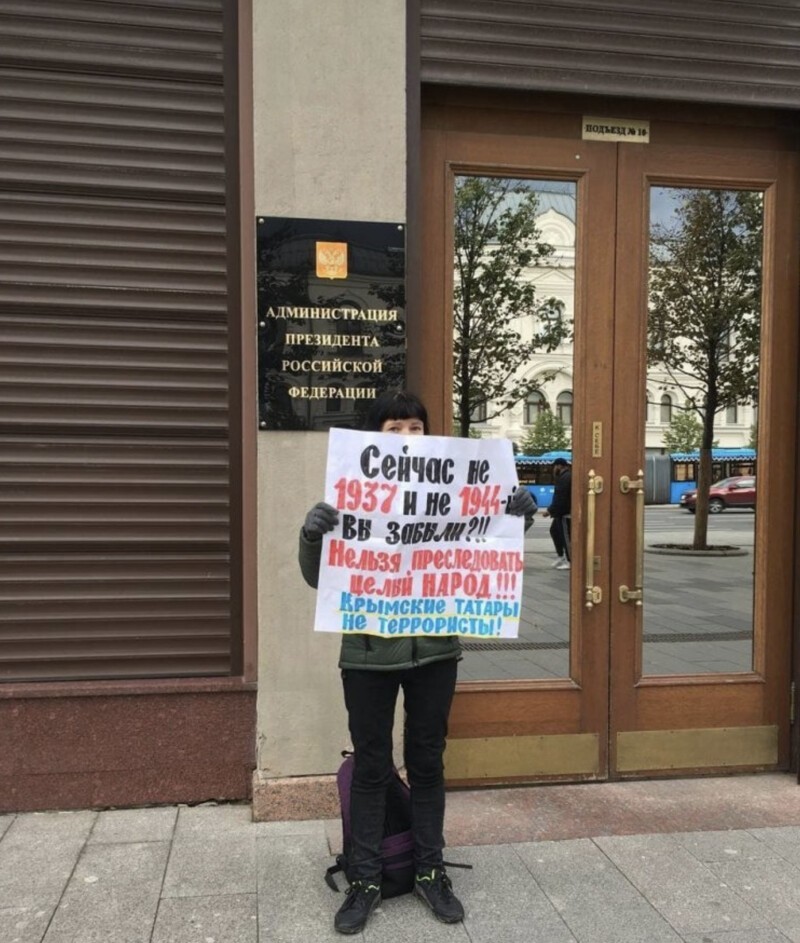 ПОДЪЕЗД № 10
АДМИНИСТРАЦИЯ
ПРЕЗИДЕНТА
РОССИЙСКОЙ
ФЕДЕРАЦИИ
К СЕБЕ
Сейчас не
1937 и не 1944-й
Вы забыли?!!
Нельзя преследовать
целый НАРОД!!!
Крымские татары
не террористы!